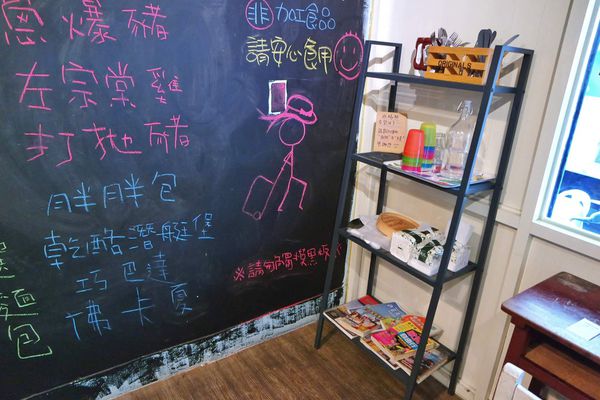 蔥爆豬
左宗棠雞
打拋豬
胖胖包
乾酪潛艇堡
巧巴達
佛卡夏
麵
包
非加工食品
請安心食用
※請勿觸摸黑板
ORIGINALS